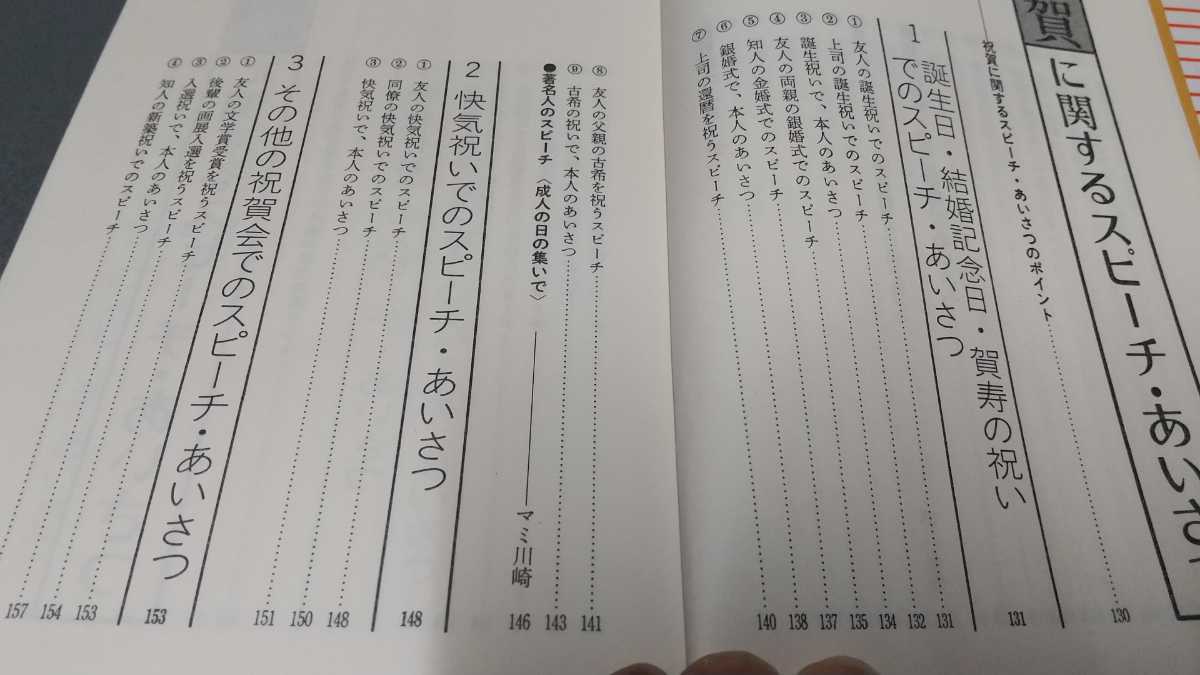 賀に関するスピーチ・あいさ
祝賀に関するスピーチ・あいさつのポイント 130
1 誕生日・結婚記念日・賀寿の祝い
でのスピーチ・あいさつ 131
① 友人の誕生祝いでのスピーチ 131
② 上司の誕生祝いでのスピーチ 132
③ 誕生祝いで、本人のあいさつ 134
④ 友人の両親の銀婚式でのスピーチ 135
⑤ 知人の金婚式でのスピーチ 137
⑥ 銀婚式で、本人のあいさつ 138
⑦ 上司の還暦を祝うスピーチ 140
⑧ 友人の父親の古希を祝うスピーチ 141
⑨ 古希の祝いで、本人のあいさつ 143
●著名人のスピーチ〈成人の日の集いで〉 マミ川崎 146
2 快気祝いでのスピーチ・あいさつ 148
① 友人の快気祝いでのスピーチ 148
② 同僚の快気祝いでのスピーチ 150
③ 快気祝いで、本人のあいさつ 151
3 その他の祝賀会でのスピーチ・あいさつ 153
① 友人の文学賞受賞を祝うスピーチ 153
② 後輩の画展入選を祝うスピーチ 154
③ 入選祝いで、本人のあいさつ 157
④ 知人の新築祝いでのスピーチ